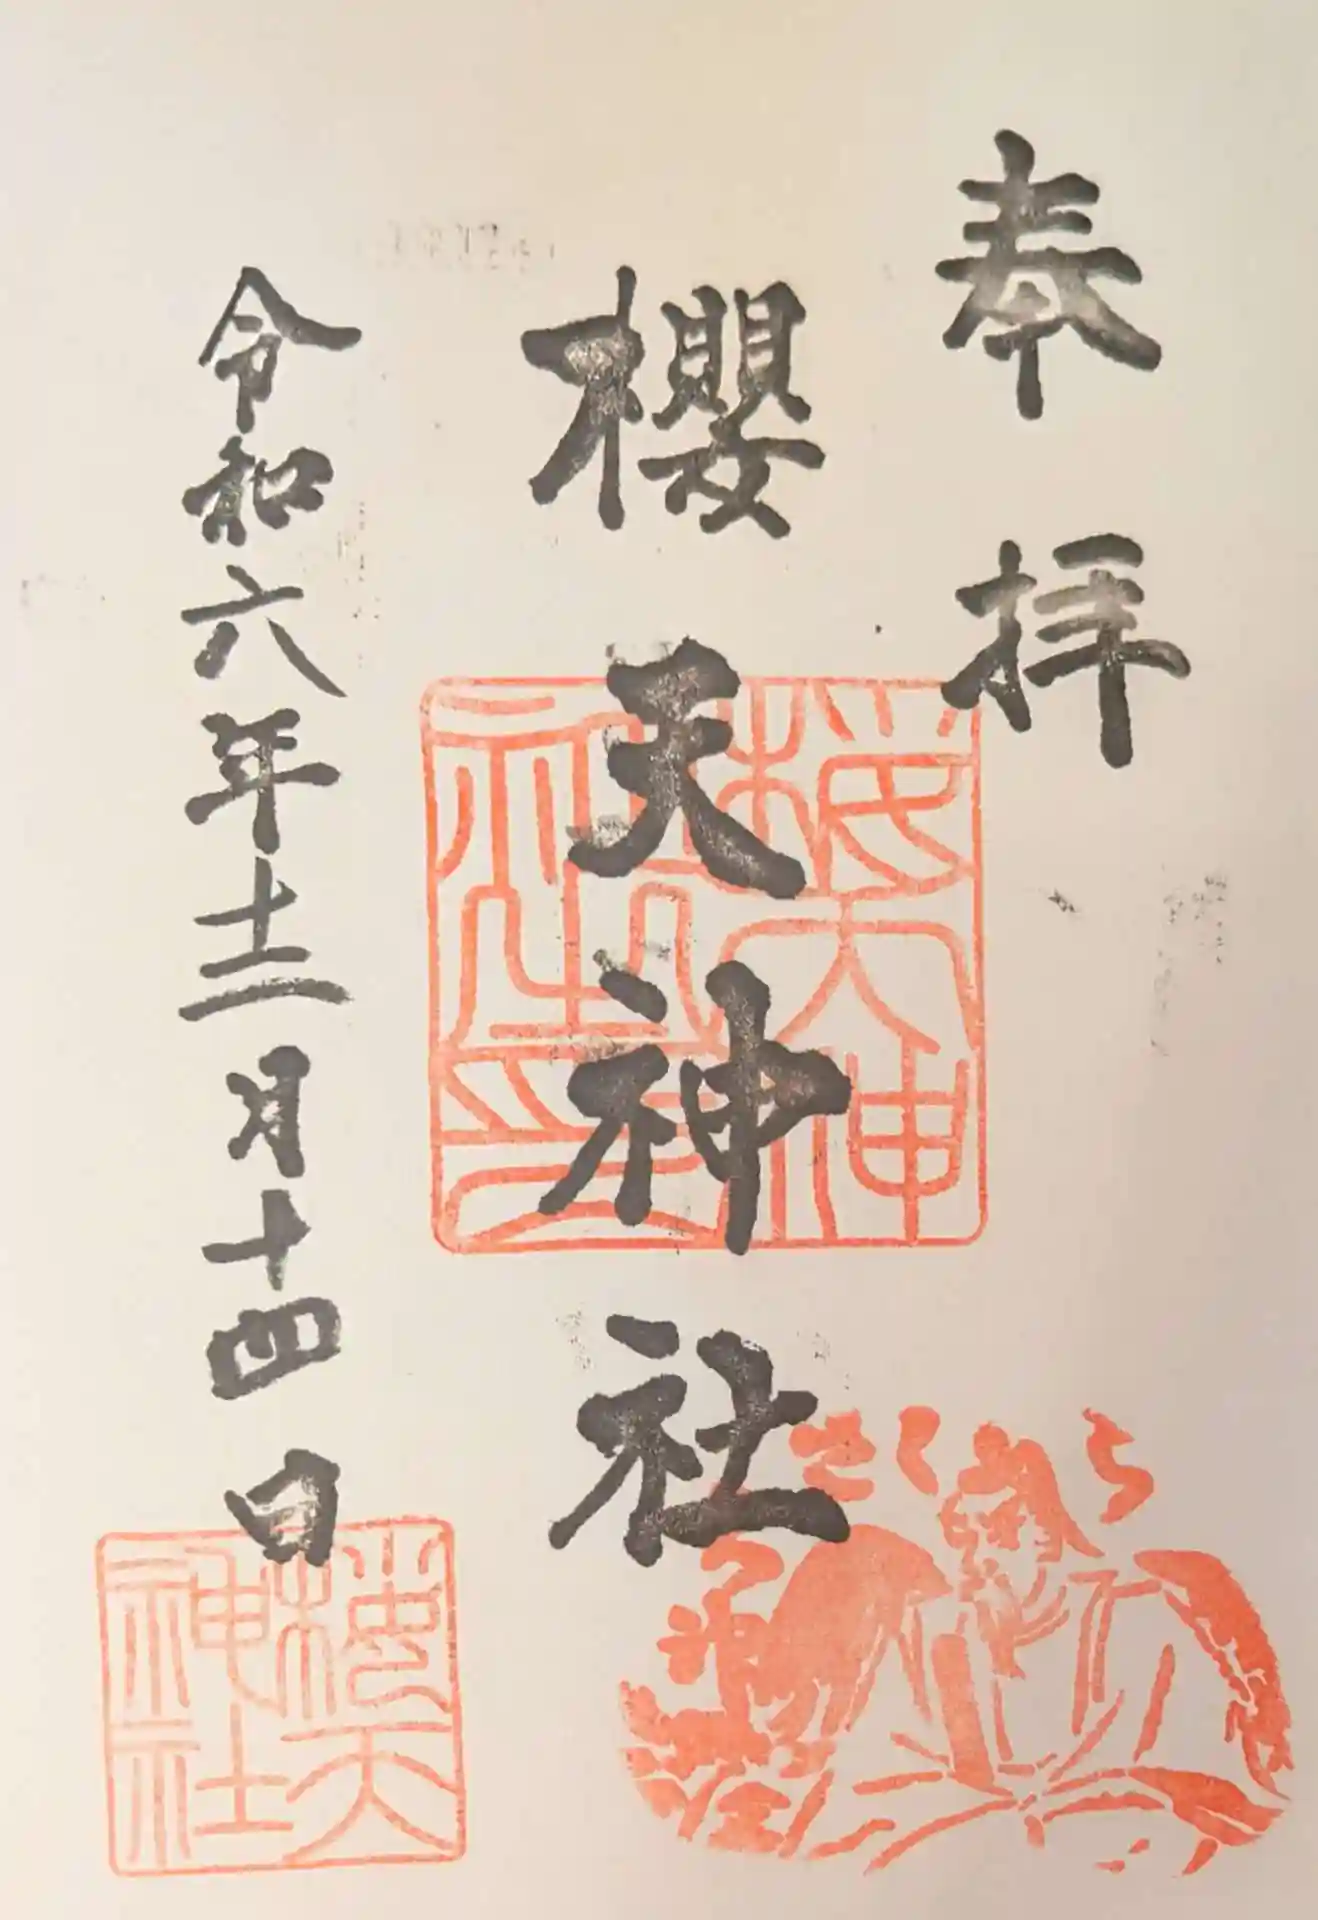 奉拝
櫻天神社
令和六年十二月十四日
櫻天神社印
さくら
櫻天神社